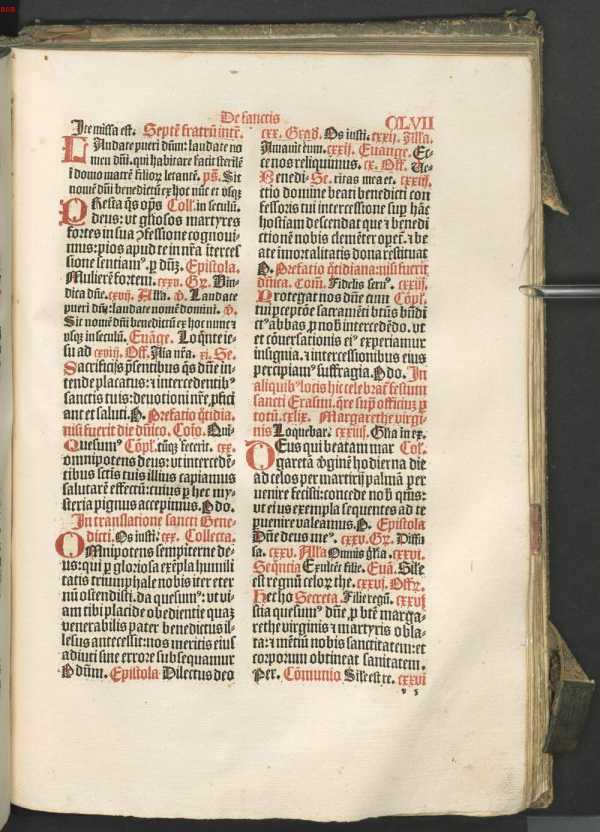 De sanctis CXLVII
Ite missa est. Septē fratrū intr̄.
LAudate pueri dūm: laudate no
men dñi. qui habitare facit sterilē
ī domo matrē filioꝝ letantē. p̄s. Sit
nomē dñi benedictū ex hoc nūc et vsqꝫ
PResta q̄s oꝑs Coll. in seculū.
deus: vt gl̄iosos martyres
fortes in sua ꝯfessione cognoui-
mus: pios apud te in nr̄a ītercel
sione sentiamꝰ. ꝑ dñꝫ. Epistola.
Mulierē fortem. cxxv. Gr̄. Vin-
dica dn̄e. cxvij. Alla. ℣. Laudate
pueri dn̄ꝫ: laudate nomē domini. ℣.
Sit nomē dñi benedictū ex hoc nunc ⁊
vsqꝫ in seculū. Euāge. Loq̄nte ie-
su ad cxviij. Off. Aīa nr̄a. xi. Se.
Sacrificijs p̄sentibus q̄s dn̄e in-
tende placatus: ⁊ intercedentibꝰ
sanctis tuis: deuotioni nr̄e ꝓfici
ant et saluti. P. Prefatio q̄tidia.
nisi fuerit die dn̄ico. Cōīo. Qui-
Quesumꝰ Cōpl. cūqꝫ fecerit. cxx.
omnipotens deus: vt intercedē-
tibus sctīs tuis illius capiamus
salutarē effectū: cuius ꝑ hec my-
steria pignus accepimus. P do.
In translatione sancti Bene-
dicti. Os iusti. cxx. Collecta.
OMnipotens sempiterne de-
us: qui ꝑ gloriosa exēpla humili
tatis triumphale nobis iter eter
nū ostendisti. da quesumꝰ: vt vi-
am tibi placide obedientie quaꝫ
venerabilis pater benedictus il-
lesus antecessit: nos meritis eius
adiuti sine errore subsequamur
P dūm. Epistola Dilectus deo
cxx. Grad. Os iusti. cxxij. Alla.
Amauit eum. cxxij. Euange. Ec-
ce nos reliquimus. cx. Off. De-
Benedi- Se. ritas mea et. cxxiij.
ctio domine beati benedicti con
fessoris tui intercessione suꝑ hāc
hostiam descendat que ⁊ benedi
ctionē nobis clemēter operet᷑. ⁊ be
ate immortalitatis dona restituat
P. Prefatio q̄tidiana: nisi fuerit
dn̄ica. Com̄. Fidelis seruꝰ. cxxiij.
Protegat nos dn̄e cum Cōpl.
tui ꝑceptōe sacramēti btūs būdi
ctꝰ abbas ꝑ nob̄ intercedēdo. vt
et cōuersationis eiꝰ experiamur
insignia. ⁊ intercessionibus eius
percipiamꝰ suffragia. P do. In
aliquibꝰ locis hic celebrat᷑ festum
sancti Erasmi. q̄re sup̄ officiuꝫ ꝑ
totū. cxlix. Margarethe virgi-
nis Loquebar. cxxiiij. Gl̄ia in ex.
DEus qui beatam mar Col.
garetā v̄ginē hodierna die
ad celos per martyrij palmā per
uenire fecisti: concede nob̄ q̄ms:
vt eius exempla sequentes ad te
ꝑuenire valeamus. P. Epistola
Dn̄e deus meꝰ. cxxv. Gr̄. Diffu
sa. cxxv. Alla Omnis gl̄ia. cxxvi.
Sequētia Exultēt filie. Euā. Sīle
est regnū celoꝝ the. cxxvj. Offr̄.
Hec ho Secreta. Filie regū. cxxvj
stia quesumꝰ dn̄e ꝑ btē marga-
rethe virginis ⁊ martyris obla-
ta: ⁊ mētiū nobis sanctitatem: et
corporum obtineat sanitatem.
Per. Cōmunio Sīle est re. cxxvi
v 3